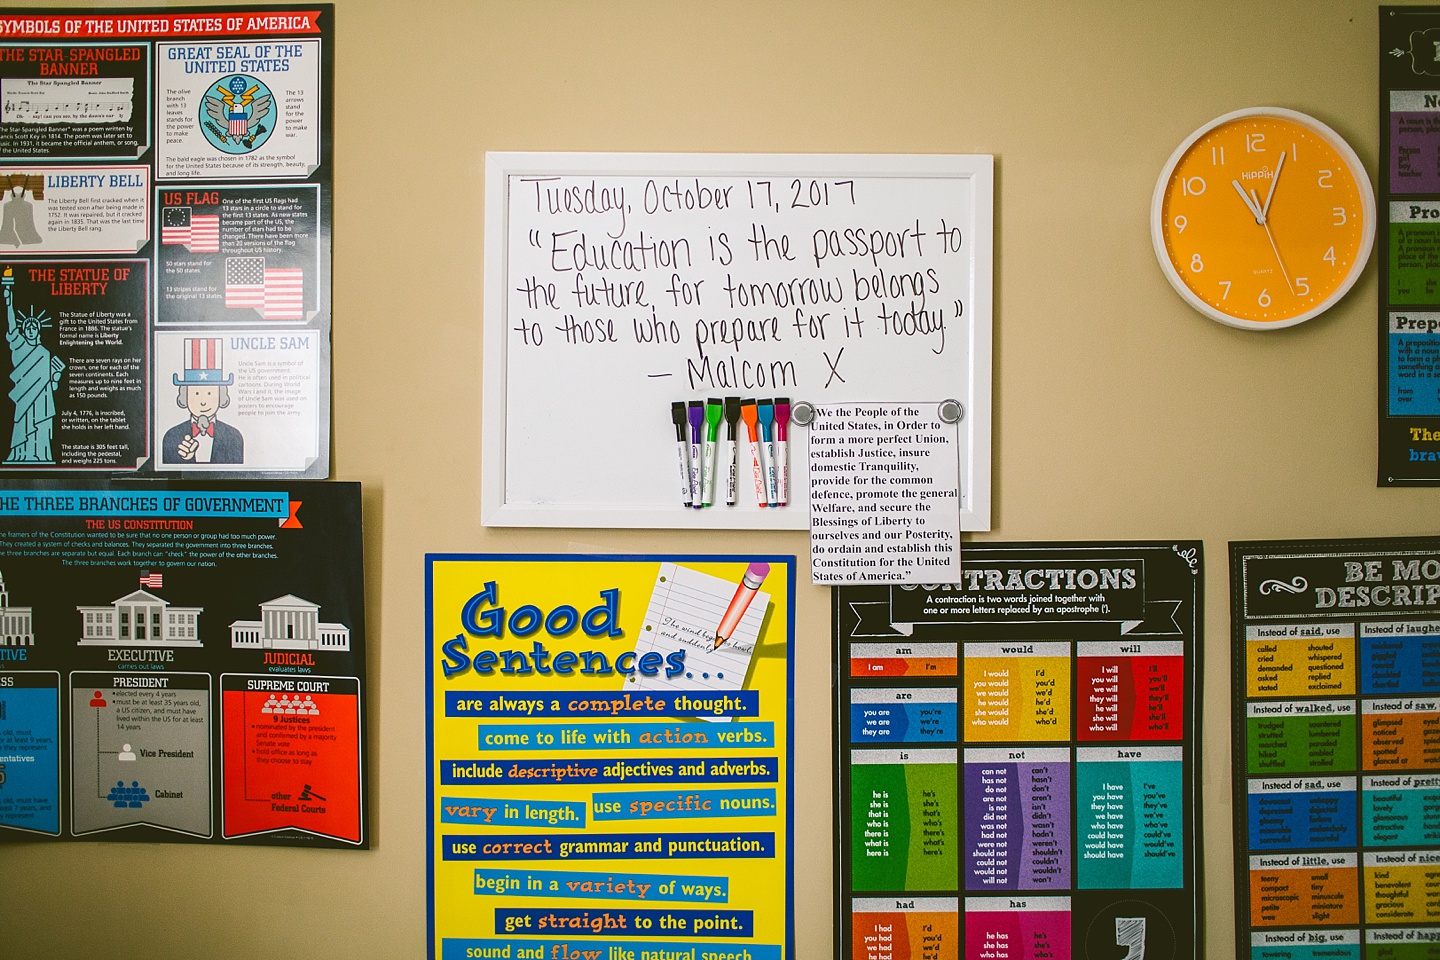 SYMBOLS OF THE UNITED STATES OF AMERICA
THE STAR-SPANGLED
BANNER
The Star Spangled Banner
"The Star-Spangled Banner" was a poem written by
Francis Scott Key in 1814. The poem was later set to
music. In 1931, it became the official anthem, or song,
of the United States.
GREAT SEAL OF THE
UNITED STATES
The olive
branch
with 13
leaves
stands for
the power
to make
peace.
The 13
arrows
stand
for the
power
to make
war.
The bald eagle was chosen in 1782 as the symbol
for the United States because of its strength, beauty,
and long life.
LIBERTY BELL
The Liberty Bell first cracked when it
was tested soon after being made in
1752. It was repaired, but it cracked
again in 1835. That was the last time
the Liberty Bell rang.
US FLAG
One of the first US flags had
13 stars in a circle to stand for
the first 13 states. As new states
became part of the US, the
number of stars had to be
changed. There have been more
than 20 versions of the flag
throughout US history.
50 stars stand for
the 50 states.
13 stripes stand for
the original 13 states.
THE STATUE OF
LIBERTY
The Statue of Liberty was a
gift to the United States from
France in 1886. The statue's
formal name is Liberty
Enlightening the World.
There are seven rays on her
crown, one for each of the
seven continents. Each
measures up to nine feet in
length and weighs as much
as 150 pounds.
July 4, 1776, is inscribed,
or written, on the tablet
she holds in her left hand.
The statue is 305 feet tall,
including the pedestal,
and weighs 225 tons.
UNCLE SAM
Uncle Sam is a symbol of
the US government.
He is often used in political
cartoons. During World
War I and II, the image
of Uncle Sam was used on
posters to encourage
people to join the army.
THE THREE BRANCHES OF GOVERNMENT
THE US CONSTITUTION
The framers of the Constitution wanted to be sure that no one person or group had too much power.
They created a system of checks and balances. They separated the government into three branches.
The three branches are separate but equal. Each branch can "check" the power of the other branches.
The three branches work together to govern our nation.
EXECUTIVE
carries out laws
JUDICIAL
evaluates laws
PRESIDENT
• elected every 4 years
• must be at least 35 years old,
a US citizen, and must have
lived within the US for at least
14 years
Vice President
Cabinet
SUPREME COURT
9 Justices
• nominated by the president
and confirmed by a majority
Senate vote
• hold office as long as
they choose to stay
other
Federal Courts
Tuesday, October 17, 2017
"Education is the passport to
the future, for tomorrow belongs
to those who prepare for it today."
— Malcom X
"We the People of the
United States, in Order to
form a more perfect Union,
establish Justice, insure
domestic Tranquility,
provide for the common
defence, promote the general
Welfare, and secure the
Blessings of Liberty to
ourselves and our Posterity,
do ordain and establish this
Constitution for the United
States of America."
12
1
2
3
4
5
6
7
8
9
10
11
HIPPIH
QUARTZ
Good
Sentences...
are always a complete thought.
come to life with action verbs.
include descriptive adjectives and adverbs.
vary in length.
use specific nouns.
use correct grammar and punctuation.
begin in a variety of ways.
get straight to the point.
sound and flow like natural speech.
CONTRACTIONS
A contraction is two words joined together with
one or more letters replaced by an apostrophe (').
am
I am I'm
are
you are you're
we are we're
they are they're
would
I would I'd
you would you'd
we would we'd
he would he'd
she would she'd
who would who'd
will
I will I'll
you will you'll
we will we'll
they will they'll
he will he'll
she will she'll
who will who'll
is
he is he's
she is she's
it is it's
that is that's
who is who's
there is there's
what is what's
here is here's
not
can not can't
has not hasn't
do not don't
are not aren't
is not isn't
did not didn't
was not wasn't
had not hadn't
were not weren't
should not shouldn't
could not couldn't
would not wouldn't
will not won't
have
I have I've
you have you've
they have they've
we have we've
who have who've
could have could've
would have would've
should have should've
had
I had I'd
you had you'd
we had we'd
he had he'd
has
he has he's
she has she's
who has who's
BE MO
DESCRIP
Instead of said, use
called shouted
cried whispered
demanded questioned
asked replied
stated exclaimed
Instead of laughe
Instead of walked, use
trudged wandered
strutted lumbered
marched paraded
hiked ambled
shuffled strolled
Instead of saw,
glimpsed
noticed
observed
spotted
glanced at
Instead of sad, use
Instead of pretty
beautiful
lovely
glamorous
attractive
elegant
Instead of little, use
teeny small
compact tiny
microscopic minuscule
petite miniature
wee slight
Instead of nice
kind
benevolent
thoughtful
gracious
considerate
Instead of big, use
towering tremendous
Instead of happ
No
Pro
Prepo
The
brav